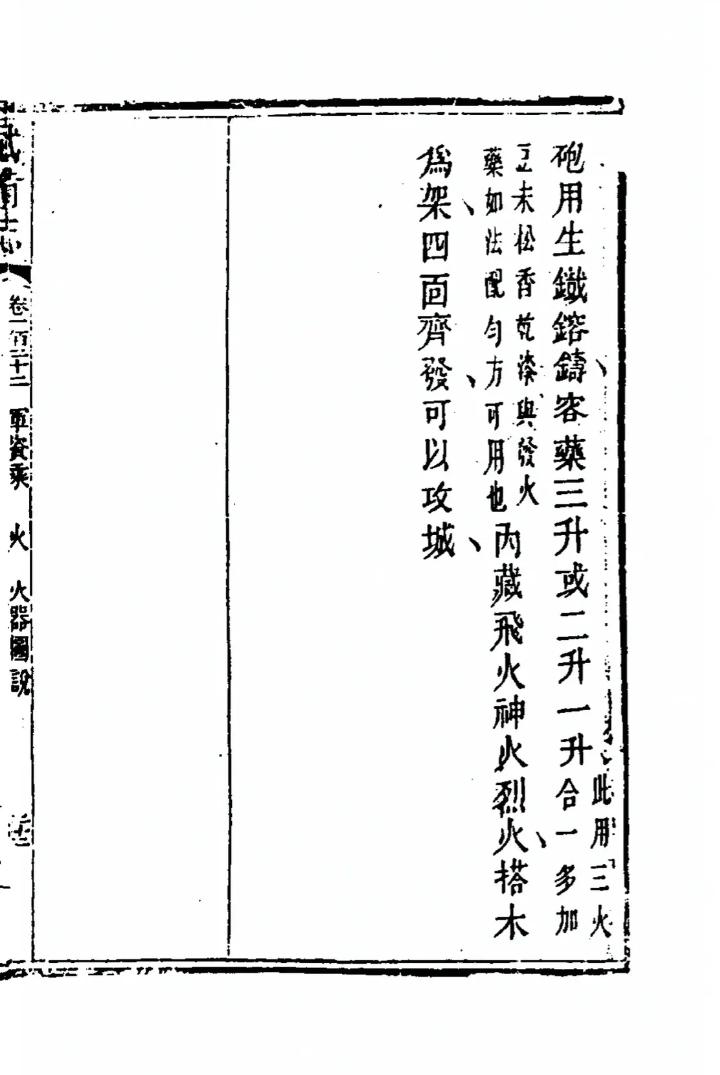 砲用生鐵鎔鑄容藥三升或二升一升此用三火
合一多加
豆末松香乾漆與發火
藥如法配勻方可用也內藏飛火神火烈火搭木
為架四面齊發可以攻城
武備志
卷一百二十二
軍資乘
火
火器圖說